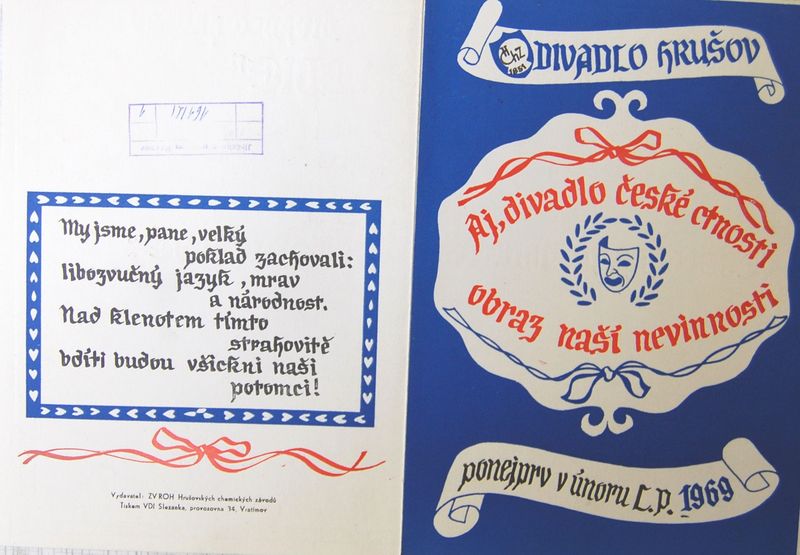 My jsme, pane, velký
poklad zachovali:
libozvučný jazyk, mrav
a národnost.
Nad klenotem tímto
strahovitě
bdíti budou všickni naši
potomci!
Vydavatel: ZV ROH Hrušovských chemických závodů
Tiskem VDI Slezanka, provozovna 34, Vratimov
HCHZ
1851
DIVADLO HRUŠOV
Aj, divadlo české ctnosti
obraz naší nevinnosti
ponejprv v únoru L.p. 1969